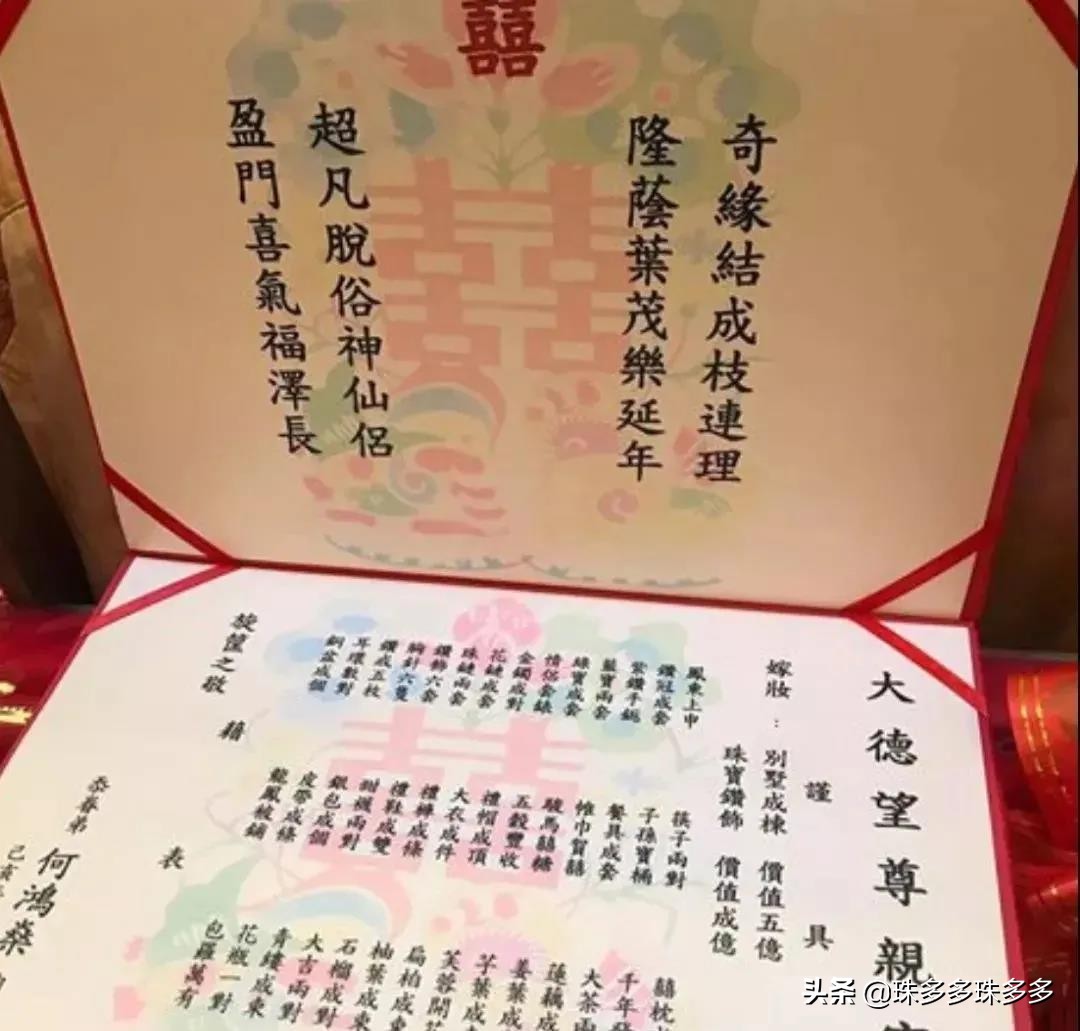 囍
奇緣結成枝連理
隆蔭葉茂樂延年
超凡脫俗神仙侶
盈門喜氣福澤長
大德望尊親
謹具
嫁妝：別墅成棟 價值五億
珠寶鑽飾 價值成億
鳳東上申
鑽冠成套
紫鑽手鈪
藍寶兩套
綠寶成套
情侶套錶
金鐲成對
花鏈成套
珠鏈兩套
鑽飾六套
胸針六隻
鑽戒五枚
耳環數對
銅盆成個
筷子兩對
子孫寶桶
餐具成套
帷巾賀囍
駿馬囍糖
五穀豐收
禮帽成項
大衣成件
禮褲成條
禮鞋成雙
甜襪兩對
銀包成個
皮帶成條
龍鳳被鋪
囍枕
千年
大茶兩
蓮藕成
姜葉成
芋葉成
芙蓉開花
扁柏成東
柚葉成東
石榴成對
大吉兩對
青縷成東
花瓶一對
包羅萬有
旋筐之敬 藉
表
忝眷弟 何鴻燊
己亥
头条 @珠多多珠多多